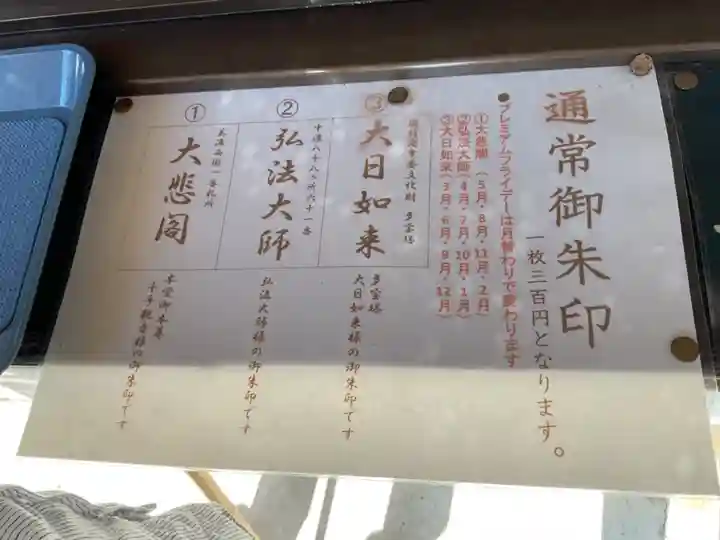 通常御朱印
一枚三百円となります。
●プレミアムフライデーは月替わりで変わります
①大悲閣(5月・8月・11月・2月)
②弘法大師(4月・7月・10月・1月)
③大日如来(3月・6月・9月・12月)
③
国指定重要文化財 多宝塔
大日如来
多宝塔
大日如来様の御朱印です
②
中濃八十八ヶ所六十一番
弘法大師
弘法大師様の御朱印です
①
美濃西国一番札所
大悲閣
本堂御本尊
千手観音様の御朱印です